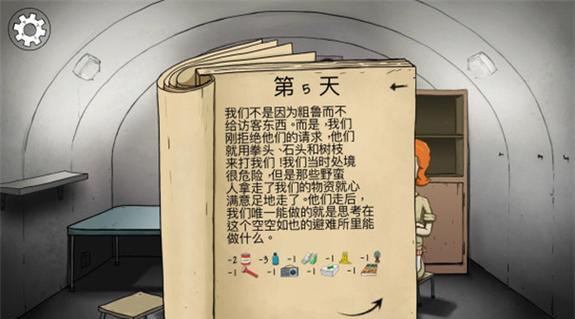 第 5 天
我们不是因为粗鲁而不
给访客东西。而是,我们
刚拒绝他们的请求,他们
就用拳头、石头和树枝
来打我们!我们当时处境
很危险,但是那些野蛮
人拿走了我们的物资就心
满意足地走了。他们走后,
我们唯一能做的就是思考在
这个空空如也的避难所里能
做什么。
-2 -3 -1 -1 -1
-1 -1 -1 -1